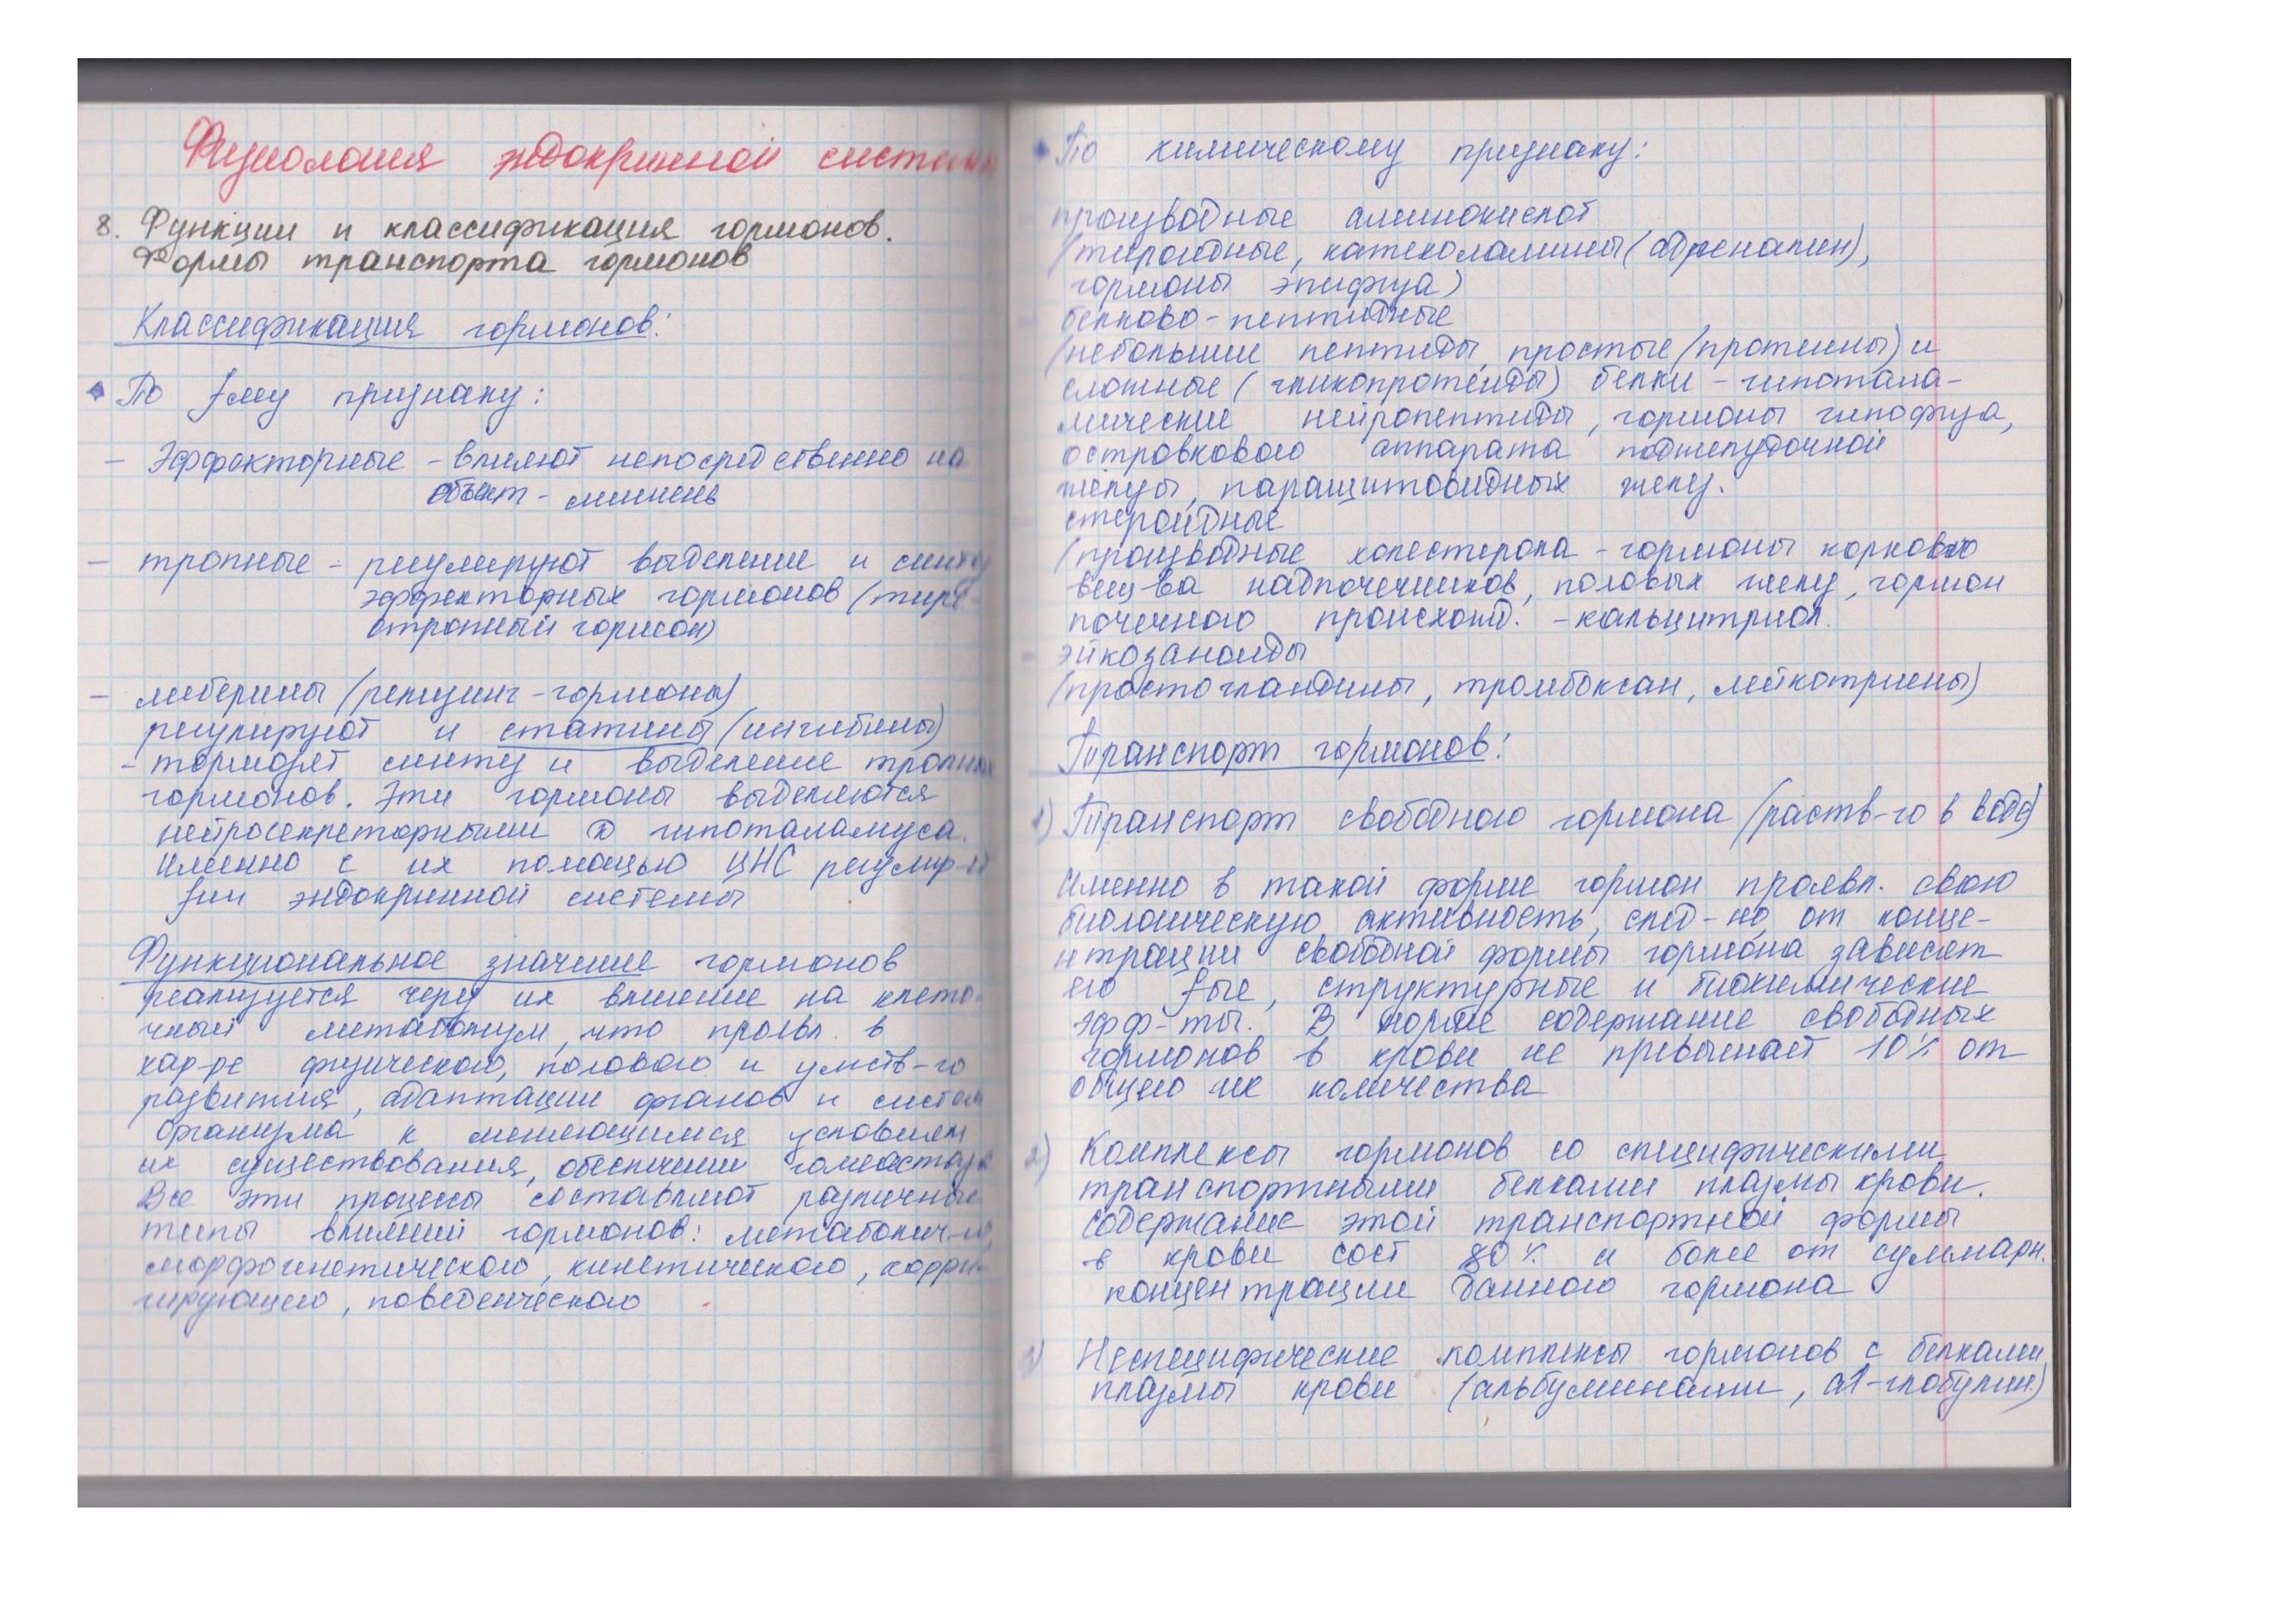 Физиология эндокринной системы
8. Функции и классификация гормонов.
Формы транспорта гормонов
Классификация гормонов:
По fму признаку:
- Эффекторные - влияют непосредственно на
объект - мишень
- тропные - регулируют выделение и синтез
эффекторных гормонов (тире-
отропный гормон)
- либерины (релизинг-гормоны)
регулируют и статины (ингибины)
- тормозят синтез и выделение тропных
гормонов. Эти гормоны выделяются
нейросекреторными гипоталамуса.
Именно с их помощью ЦНС регулир-ет
fии эндокринной системы
Функциональное значение гормонов
реализуется через их влияние на клето-
чный метаболизм, что проявл. в
хар-ре физического, полового и умств-го
развития, адаптации органов и систем
организма к меняющимся условиям
их существования, обеспечении гомеостаза
Все эти процессы составляют различные
типы влияний гормонов: метаболич-го,
морфогенетического, кинетического, корри-
гирующего, поведенческого
По химическому признаку:
производные аминокислот
(тироидные, катехоламины (адреналин),
гормоны эпифиза)
белково-пептидные
(небольшие пептиды, простые (протеины) и
сложные (гликопротеиды) белки - гипотала-
мические нейропептиды, гормоны гипофиза,
островкового аппарата поджелудочной
железы, паращитовидных желез.
стероидные
(производные холестерола - гормоны коркового
вещ-ва надпочечников, половых желез, гормон
почечного происхожд. - кальцитриол.
эйкозаноиды
(простогландины, тромбоксан, лейкотриены)
Транспорт гормонов:
1) Транспорт свободного гормона (раств-го в воде)
Именно в такой форме гормон проявл. свою
биологическую активность, след-но, от конце-
нтрации свободной формы гормона зависят
его fые, структурные и биохимические
эфф-ты. В норме содержание свободных
гормонов в крови не превышает 10% от
общего их количества
2) Комплексы гормонов со специфическими
транспортными белками плазмы крови.
содержание этой транспортной формы
в крови сост 80% и более от суммарн.
концентрации данного гормона
3) Неспецифические комплексы гормонов с белками
плазмы крови (альбуминами, α1-глобулин.)